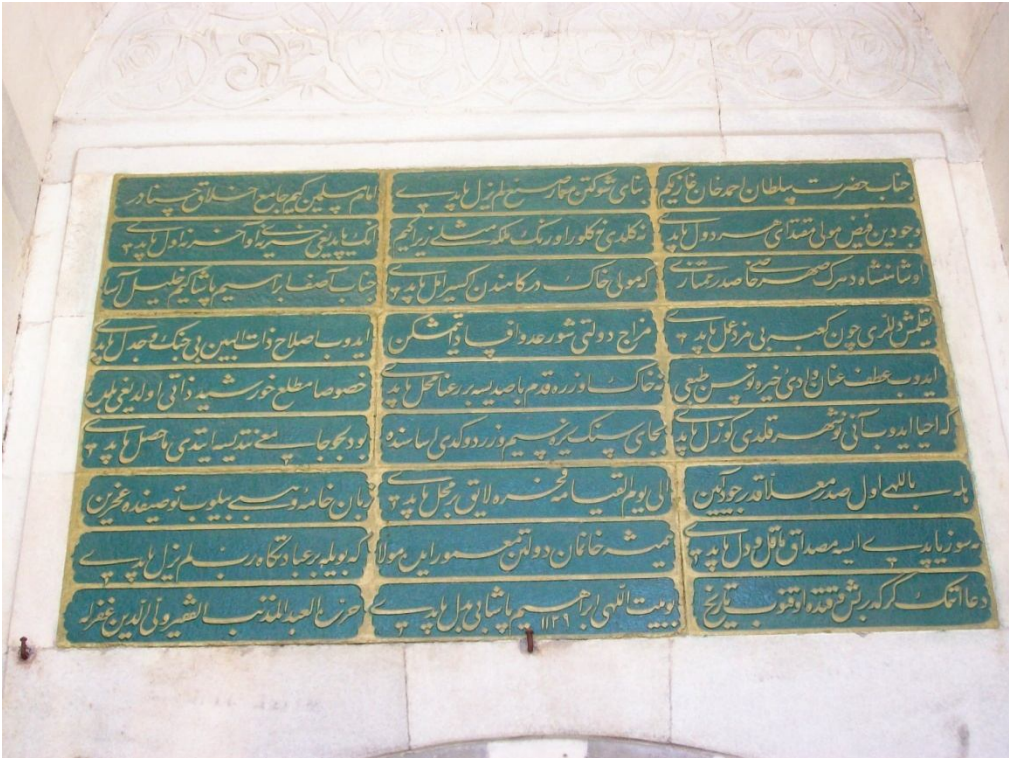 جناب حضرت سلطان احمد خان غازی کیم
بنای شوکتن معمار صنع لم یزل یاپدی
امام مسلمین کیم جامع اخلاق حسنادر
وجودین فیض مولی مقتدای هر دول یاپدی
نه کلدی نه کلور اورنک ملکه مثلی زیرا کیم
انک یاپدیغی خیری نه آخر نه اول یاپدی
او شاهنشاه دهرک صهر خاصی صدر ممتازی
که مولی خاک درکاهندن اکسیر امل یاپدی
جناب آصف ابراهیم پاشا کیم خلیل آسا
یقلمش دللری چون کعبه بی مزد عمل یاپدی
مزاج دولتی شور عدو افساد ایتمشکن
ایدوب اصلاح ذات البین بی جنک و جدل یاپدی
ایدوب عطف عنان وادی خیره توسن طبعی
نه خاک اوزره قدم باصدیسه بر رعنا محل یاپدی
خصوصا مطلع خورشید ذاتی اولدیغی بلده
که احیا ایدوب آنی نوشهر قلدی کوزل یاپدی
بجای سنک یره سیم و زر دوکدی اساسنده
بو دلجو جامعی ایتدی ماحصل یاپدی
اول صدر معلا قدر جود آیین
الی یوم القیامه لایق بر محل یاپدی
زبان خامه وهبی بیلوب توصیفده عجزین
یاپدی ایسه مصداق ما قل و دل یاپدی
همیشه خانمان دولتن معمور ایده مولا
که بویله بر عبادتگاه رب لم یزل یاپدی
دعا ایتمک کرکدر اوقوب تاریخ
بو بیت اللهی ابراهیم پاشا بی بدل یاپدی ١١٣٩
حرره العبد المذنب الفقیر ولی الدین غفر له